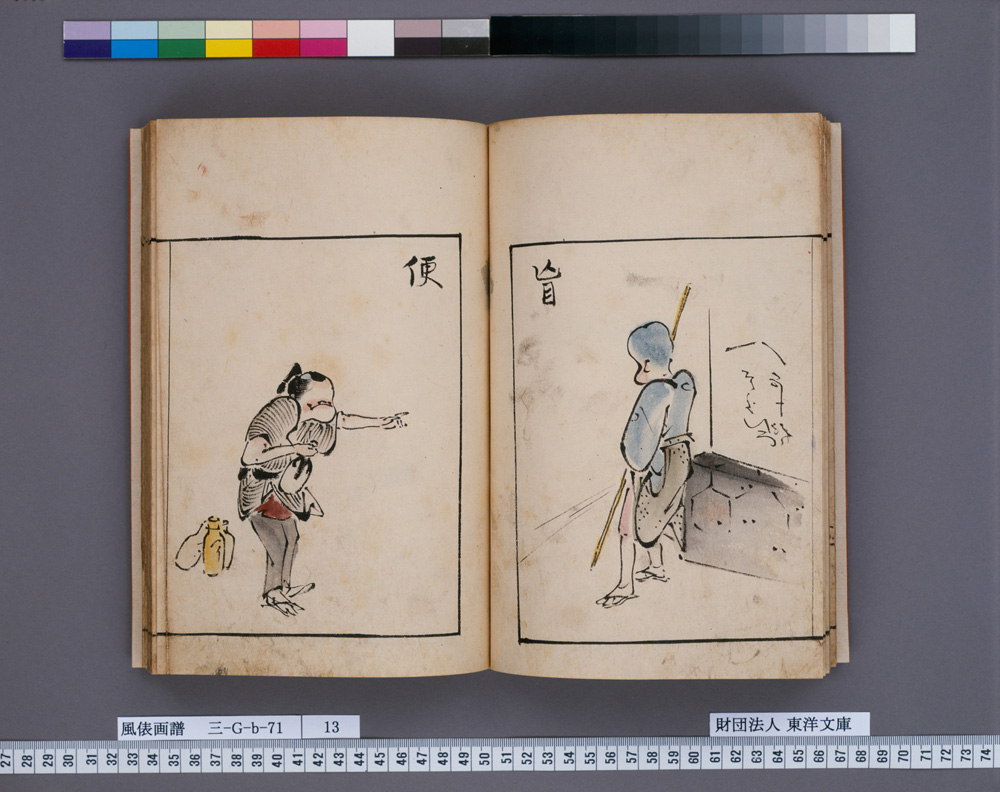 盲
便
風俵画譜 三-G-b-71 13
財団法人 東洋文庫
27 28 29 30 31 32 33 34 35 36 37 38 39 40 41 42 43 44 45 46 47 48 49 50 51 52 53 54 55 56 57 58 59 60 61 62 63 64 65 66 67 68 69 70 71 72 73 74